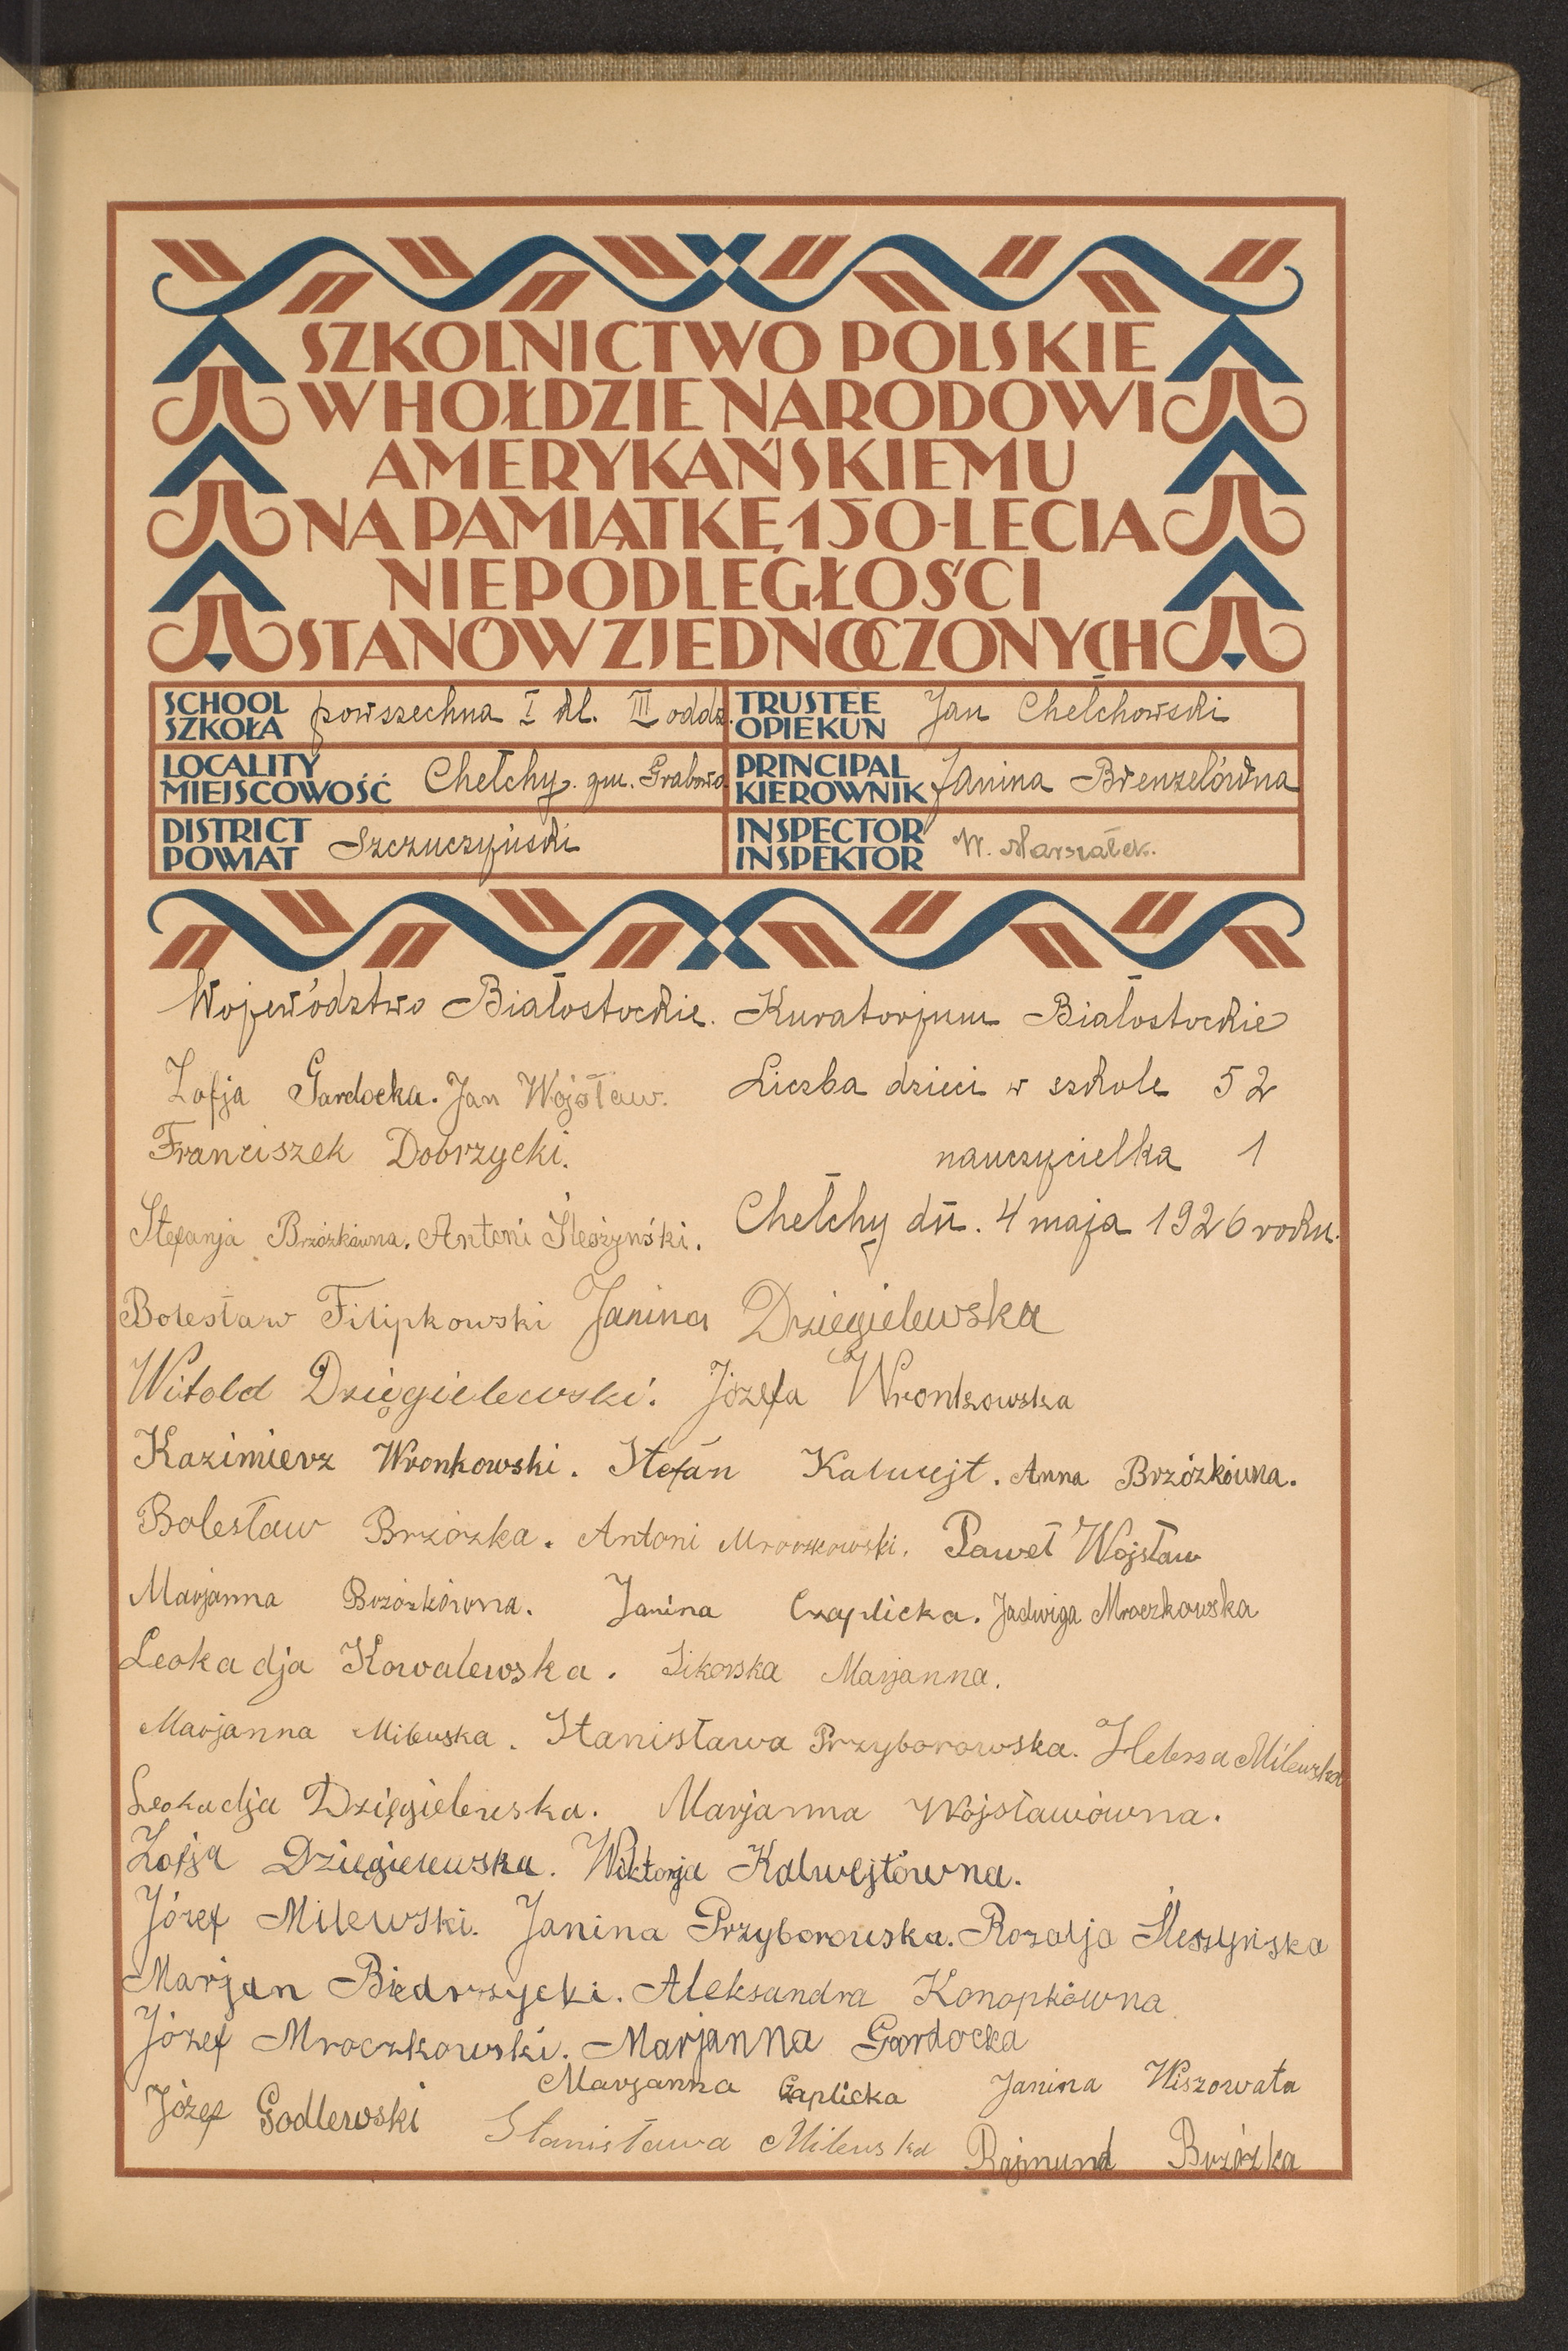 SZKOLNICTWO POLSKIE
W HOŁDZIE NARODOWI
AMERYKAŃSKIEMU
NA PAMIĄTKĘ 150-LECIA
NIEPODLEGŁOŚCI
STANÓW ZJEDNOCZONYCH
SCHOOL
SZKOŁA powszechna I kl. III oddz.
TRUSTEE
OPIEKUN Jan Chełchowski
LOCALITY
MIEJSCOWOŚĆ Chełchy. gm. Grabowo
PRINCIPAL
KIEROWNIK Janina Brenzelówna
DISTRICT
POWIAT Szczuczyński
INSPECTOR
INSPEKTOR W. Marszałek.
Województwo Białostockie. Kuratorjum Białostockie
Zofja Gardocka. Jan Wojsław. Liczba dzieci w szkole 52
Franciszek Dobrzycki. nauczycielka 1
Stefanja Brzózkówna. Antoni Śleszyński. Chełchy dn. 4 maja 1926 roku.
Bolesław Filipkowski Janina Dzięgielewska
Witold Dzięgielewski. Józefa Wronkowska
Kazimierz Wronkowski. Stefan Kalwejt. Anna Brzózkówna.
Bolesław Brzózka. Antoni Mroczkowski. Paweł Wojsław
Marjanna Brzózkówna. Janina Czaplicka. Jadwiga Mroczkowska
Leokadja Kowalewska. Sikorska Marjanna.
Marjanna Milewska. Stanisława Przyborowska. Helena Milewska
Leokadja Dzięgielewska. Marjanna Wojsławówna.
Zofja Dzięgielewska. Wiktorja Kalwejtówna.
Józef Milewski. Janina Przyborowska. Rozalja Śleszyńska
Marjan Biedrzycki. Aleksandra Konopkówna
Józef Mroczkowski. Marjanna Gardocka
Józef Godlewski Marjanna Czaplicka Janina Wiszowata
Stanisława Milewska Rajmund Brzózka